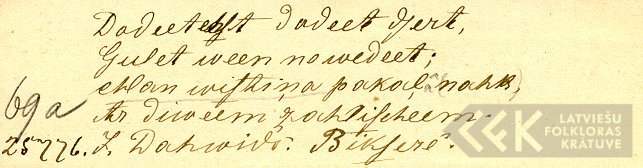 Dodeet ehst dodeet dsert,
Gulet ween nowedeet;
Man wistiņa pakaļ nahk,
69a Ar diweem zahļischeem.
25776. J. Dahwids. Biksere.
LATVIEŠU
FOLKLORAS
KRĀTUVE